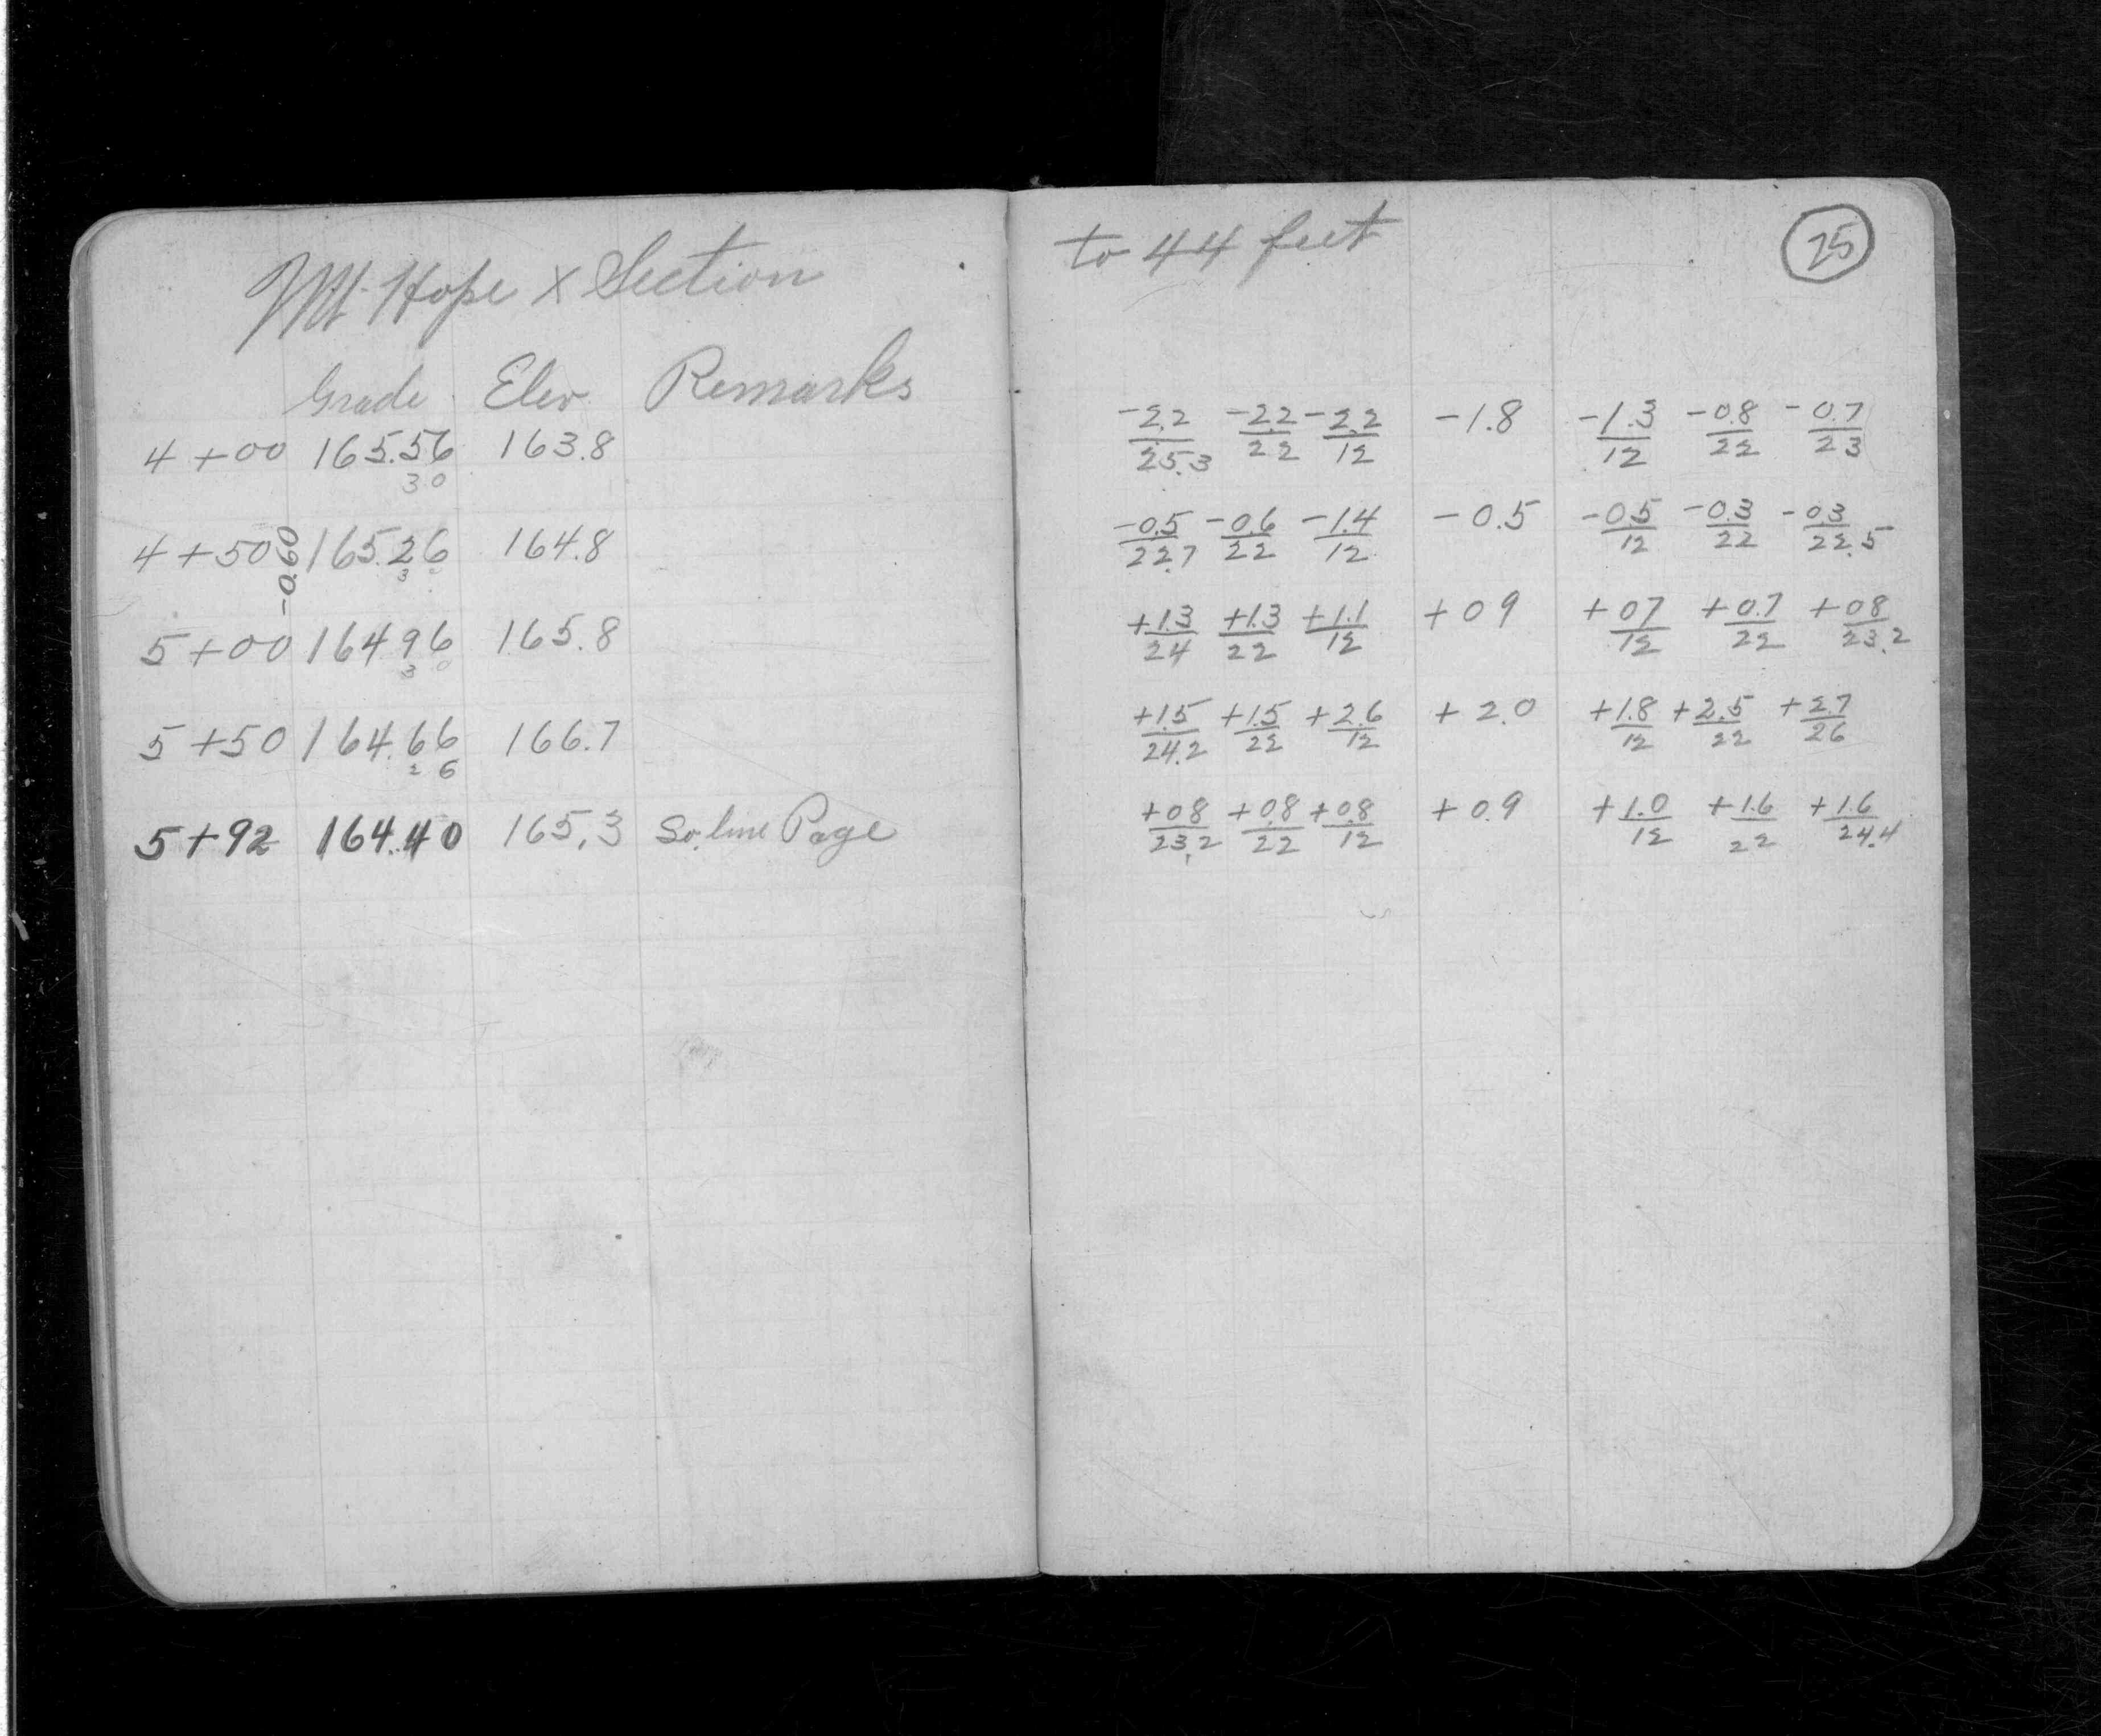 Mt. Hope x Section to 44 feet 25
Grade Elev. Remarks
4+00 165.56 163.8 -2.2/25.3 -2.2/22 -2.2/12 -1.8 -1.3/12 -0.8/22 -0.7/23
30
4+50 165.26 164.8 -0.5/22.7 -0.6/22 -1.4/12 -0.5 -0.5/12 -0.3/22 -0.3/22.5
-0.60
3
5+00 164.96 165.8 +1.3/24 +1.3/22 +1.1/12 +0.9 +0.7/12 +0.7/22 +0.8/23.2
30
5+50 164.66 166.7 +1.5/24.2 +1.5/22 +2.6/12 +2.0 +1.8/12 +2.5/22 +2.7/26
26
5+92 164.40 165.3 So. line Page +0.8/23.2 +0.8/22 +0.8/12 +0.9 +1.0/12 +1.6/22 +1.6/24.4